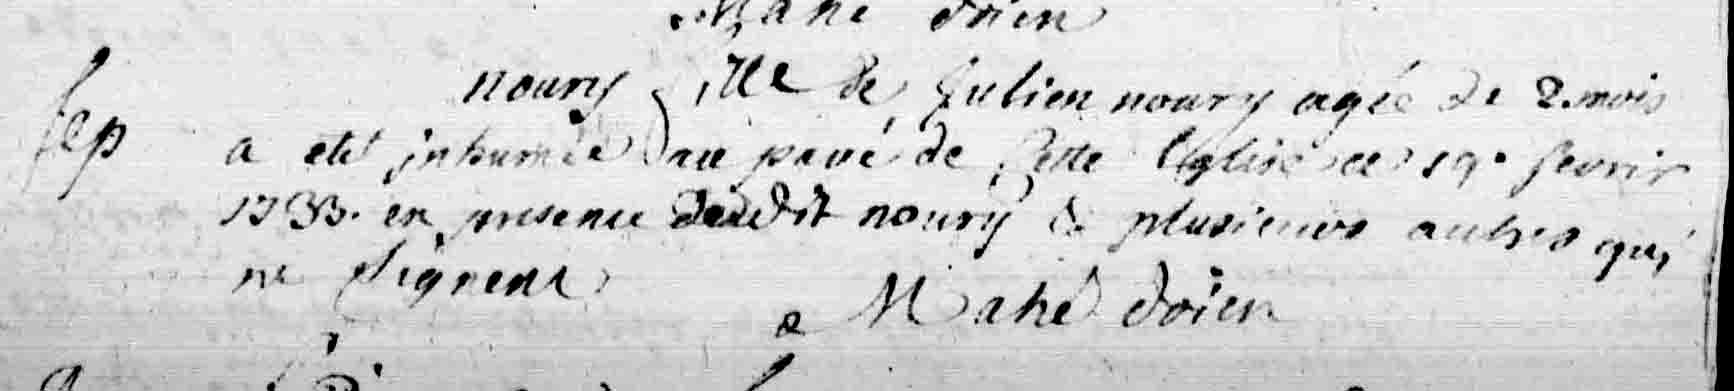 Mahé doien
noury fille de Julien noury agée de 2. mois
sep a eté inhumée au pavé de cette Eglise ce 19e fevrier
1733. en presence dudit noury & plusieurs autres qui
ne signent
Mahé doien